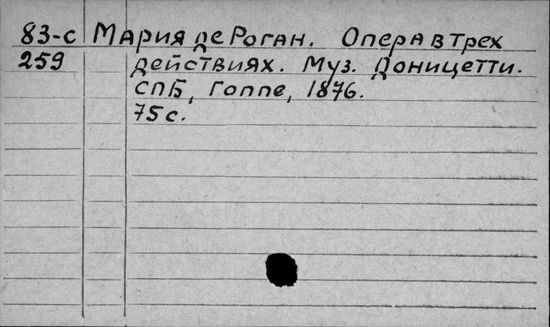 83-с Мария де Роган. Опера в трех
259 действиях. Муз. Доницетти.
СПБ, Гоппе, 1876.
75 с.